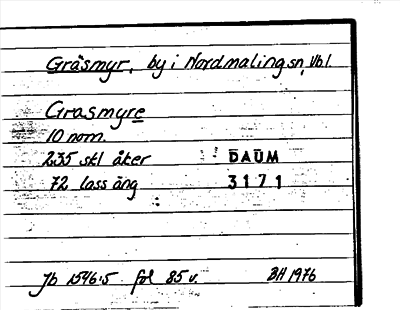 Gräsmyr, by i Nordmaling sn, Vbl.
Grasmyre
10 nom.
235 skl åker
DAUM
72 lass äng
3171
Jb 1546:5 fol 85 v.
BH 1976